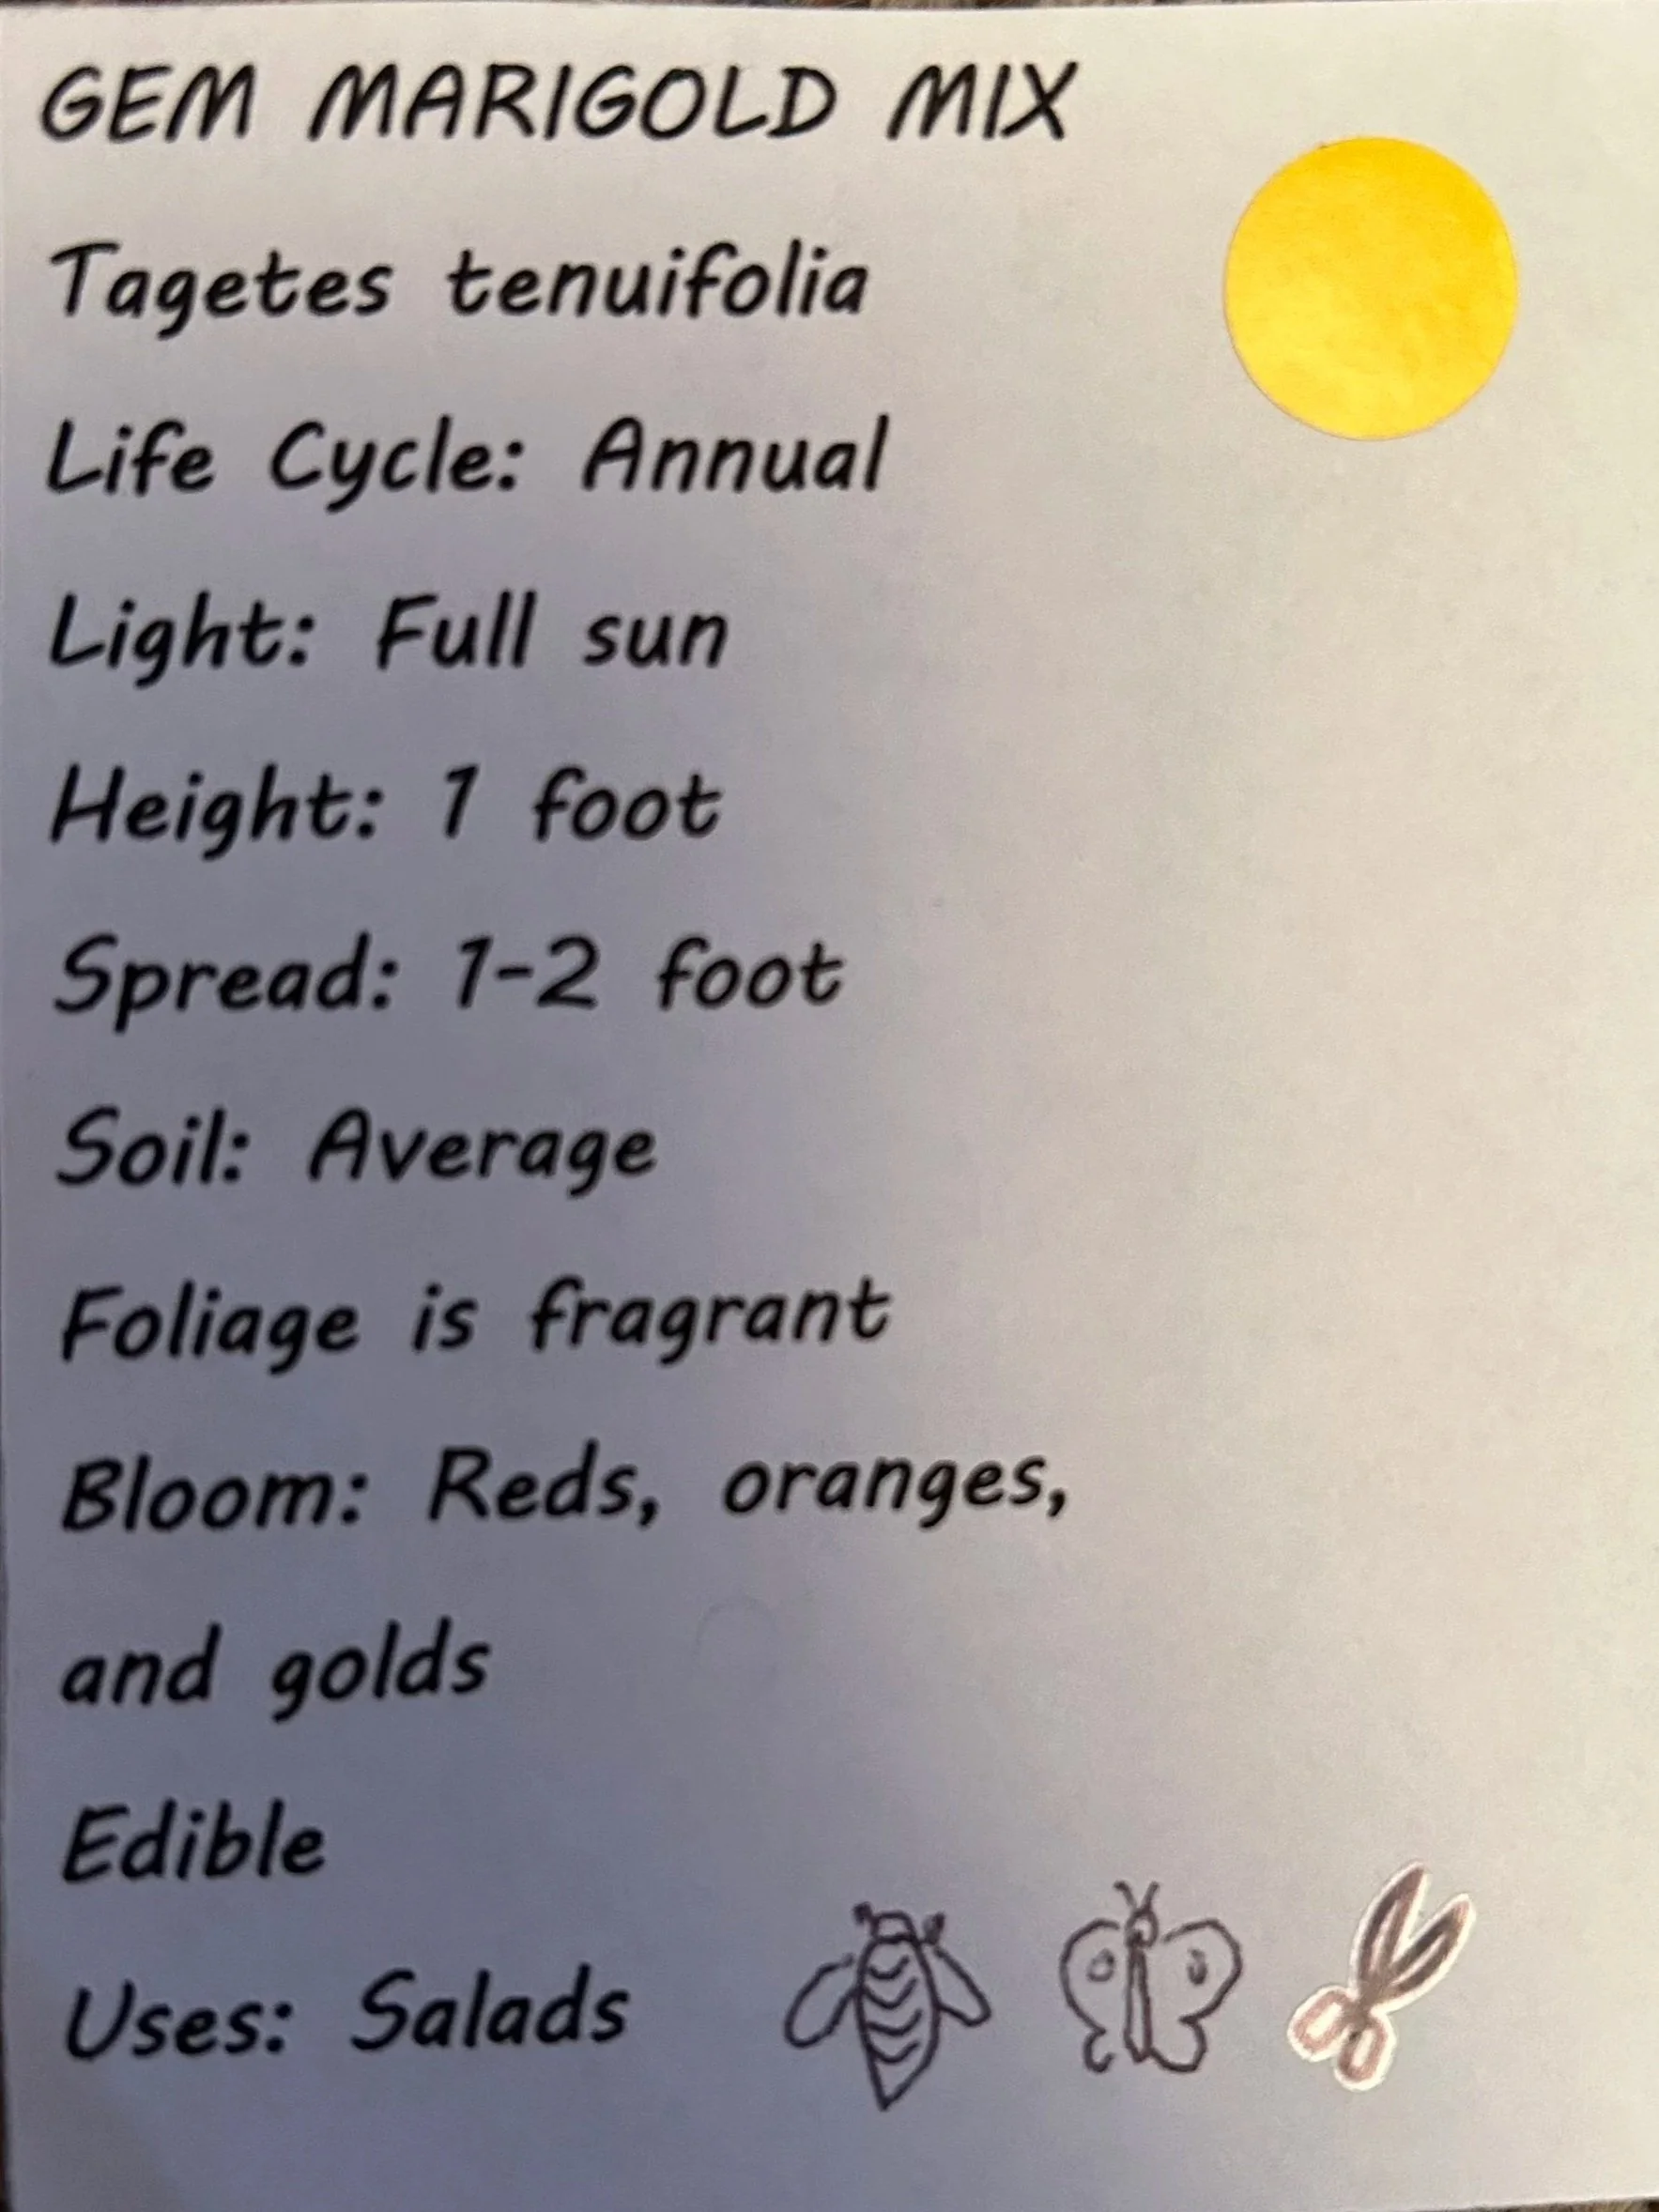 GEM MARIGOLD MIX
Tagetes tenuifolia
Life Cycle: Annual
Light: Full sun
Height: 1 foot
Spread: 1-2 foot
Soil: Average
Foliage is fragrant
Bloom: Reds, oranges,
and golds
Edible
Uses: Salads